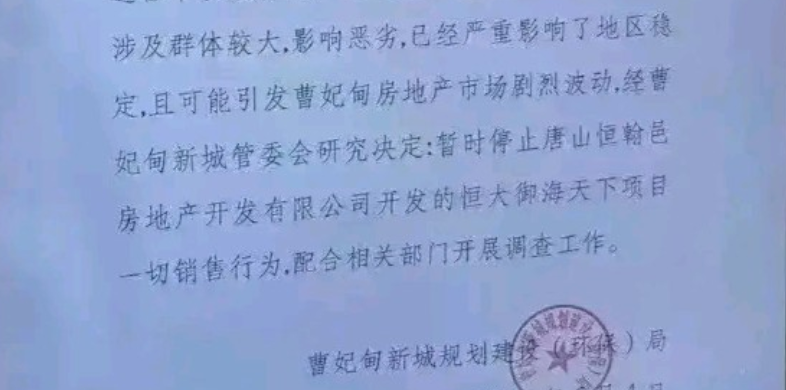 涉及群体较大,影响恶劣,已经严重影响了地区稳
定,且可能引发曹妃甸房地产市场剧烈波动,经曹
妃甸新城管委会研究决定:暂时停止唐山恒翰邑
房地产开发有限公司开发的恒大御海天下项目
一切销售行为,配合相关部门开展调查工作。
曹妃甸新城规划建设（环保）局